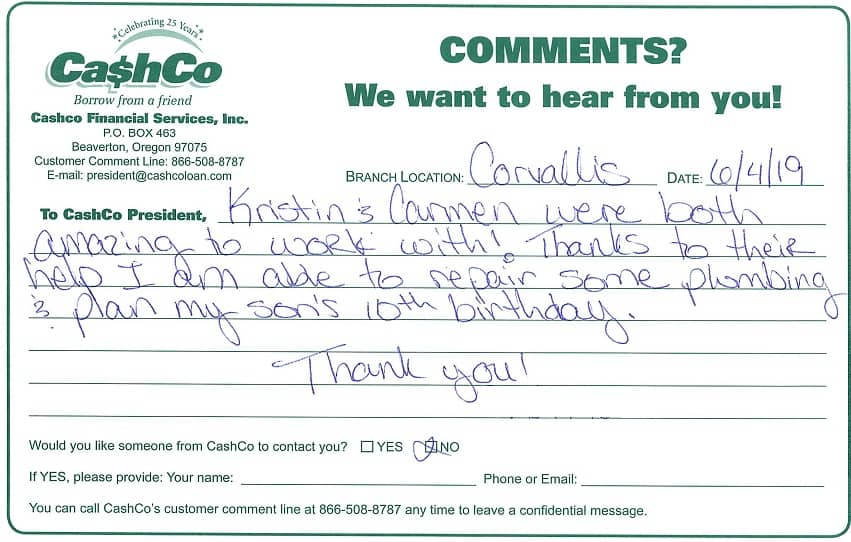 Celebrating 25 Years
Ca$hCo
Borrow from a friend
Cashco Financial Services, Inc.
P.O. BOX 463
Beaverton, Oregon 97075
Customer Comment Line: 866-508-8787
E-mail: president@cashcoloan.com
COMMENTS?
We want to hear from you!
BRANCH LOCATION: Corvallis DATE: 6/4/19
To CashCo President, Kristin & Carmen were both
amazing to work with! Thanks to their
help I am able to repair some plumbing
& plan my son's 10th birthday.
Thank you!
Would you like someone from CashCo to contact you? ☐ YES ☑ NO
If YES, please provide: Your name: Phone or Email:
You can call CashCo's customer comment line at 866-508-8787 any time to leave a confidential message.